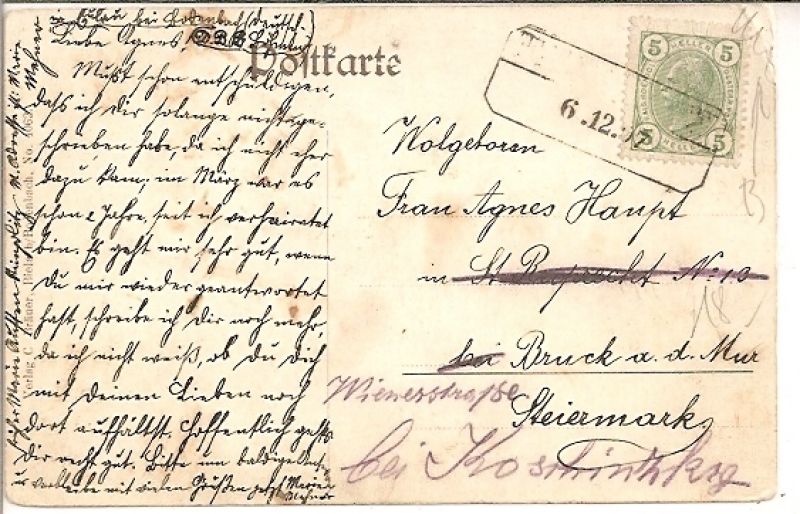 in Eulau bei Bodenbach (Deutsch
Liebe Agnes
Postkarte
Musst schon entschuldigen,
dass ich dir solange nichts ge-
schrieben habe, da ich nicht eher
dazu kam; im März war es
schon 2 Jahre, seit ich verheiratet
bin. Es geht mir sehr gut, wenn
Du mir wieder geantwortet
hast, schreibe ich Dir noch mehr,
da ich nicht weiß, ob Du Dich
mit Deinen Lieben noch
dort aufhältst. Hoffentlich gehts
Dir recht gut. Bitte um baldige Antw.
u. verbleibe mit vielen Grüßen
Verlag C. Bodenbach. No.
5 HELLER 5
5 HELLER 5
6.12.07
Wolgeboren
Frau Agnes Haupt
in St Ruprecht No 10
18
bei Bruck a. d. Mur
Wienerstraße
Steiermark
bei